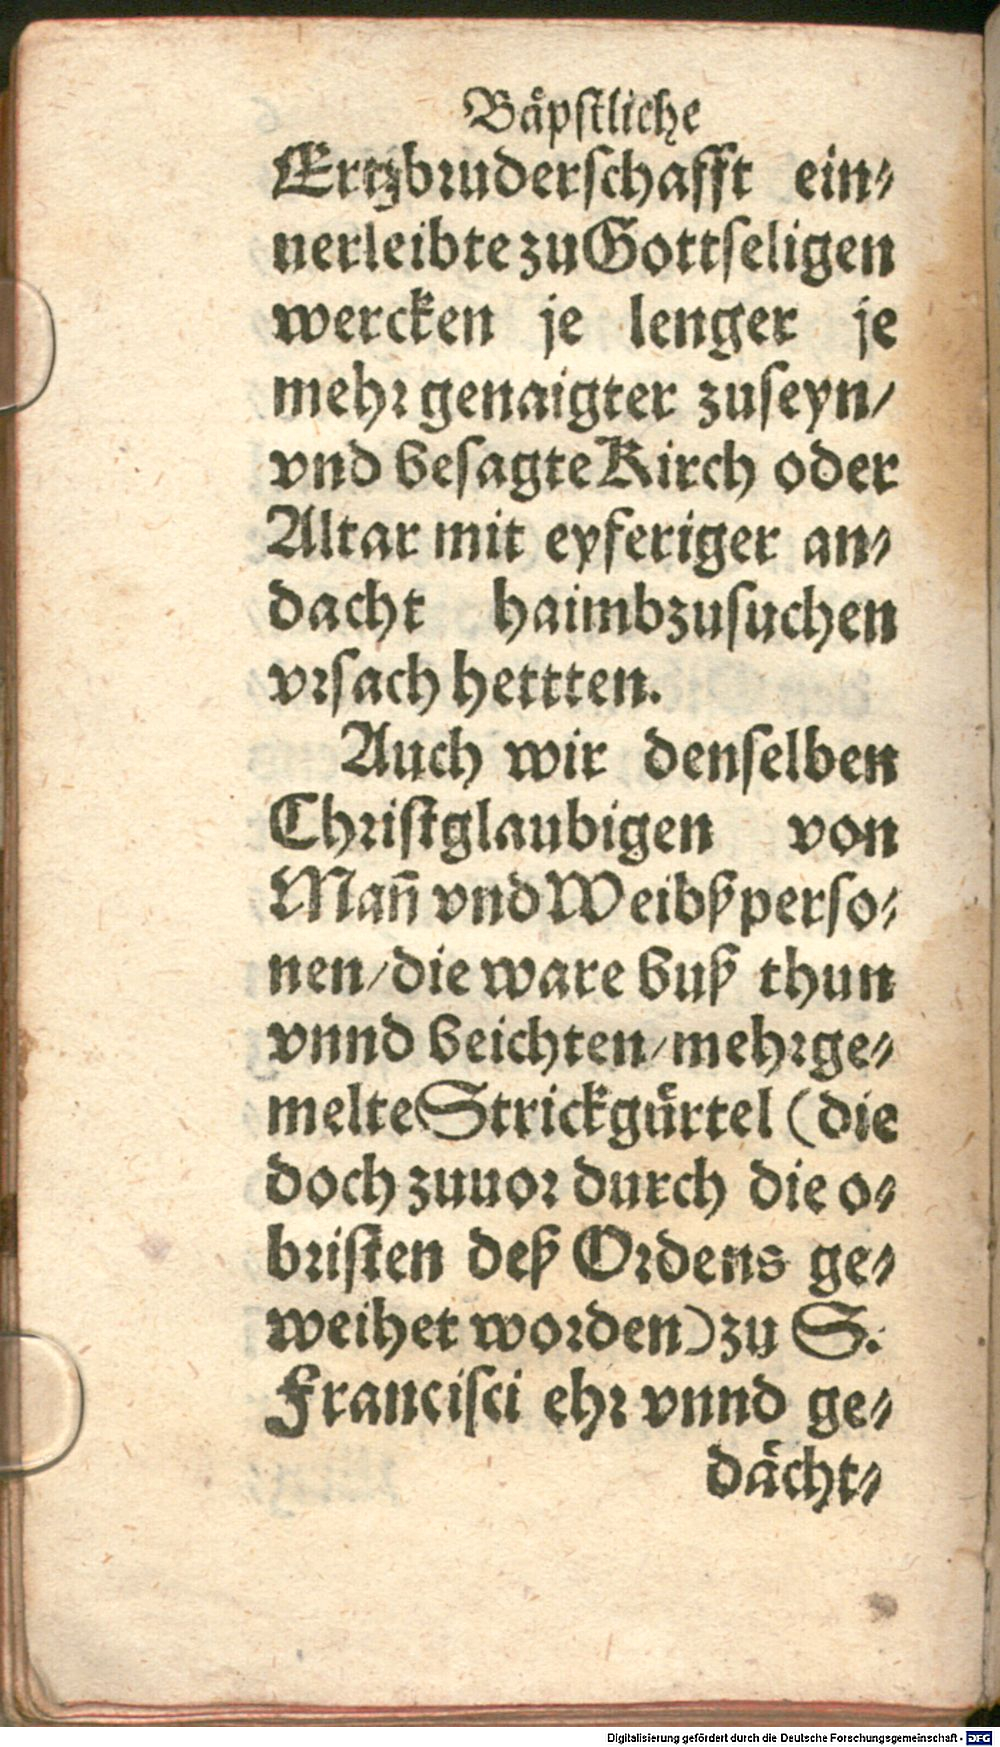 Bäpſtliche
Ertzbruderſchafft ein⸗
uerleibte zu Gottſeligen
wercken je lenger je
mehr genaigter zuſeyn/
vnd beſagte Kirch oder
Altar mit eyferiger an⸗
dacht haimbzuſuchen
vrſach hettten.
Auch wir denſelben
Chriſtglaubigen von
Mañ vnd Weibßperſo⸗
nen/die ware buß thun
vnnd beichten/mehrge⸗
melte Strickgürtel (die
doch zuuor durch die o⸗
briſten deß Ordens ge⸗
weihet worden) zu S.
Franciſci ehr vnnd ge⸗
dächt⸗
Digitalisierung gefördert durch die Deutsche Forschungsgemeinschaft - DFG